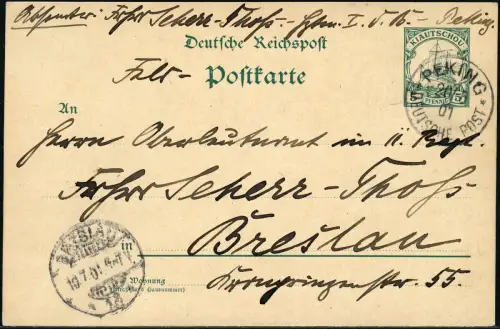 Absender: Frhr Scherr-Thoss - Peking
Deutsche Reichspost
KIAUTSCHOU
5 PFENNIG 5
PEKING
01
DEUTSCHE POST
Feld-
Postkarte
An
Herrn Oberleutnant im 11. Regt.
Frhr Scherr-Thoss
in Breslau
BRESLAU
Wohnung
(Straße und Hausnummer)
Kronprinzenstr. 55.